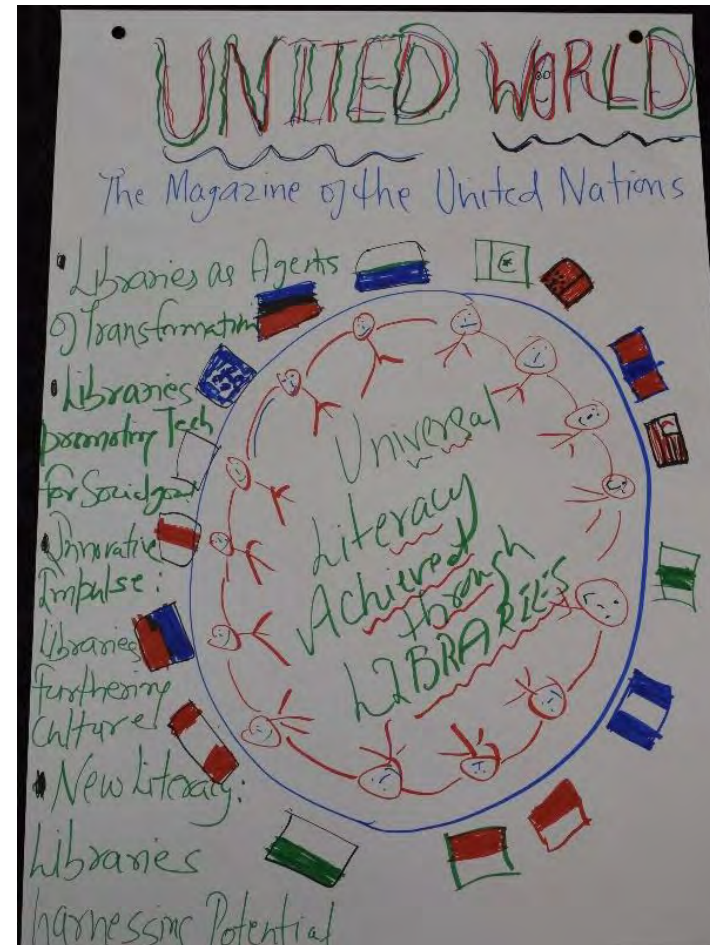 UNITED WORLD
The Magazine of the United Nations
• Libraries as Agents
of Transformation
• Libraries
promoting Tech
for Social good
• Innovative
Impulse:
Libraries
furthering
Culture
• New Literacy:
Libraries
harnessing Potential
Universal
Literacy
Achieved
through
LIBRARIES